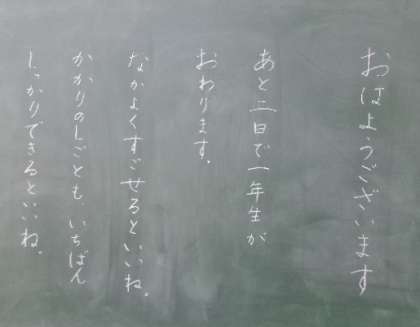 おはようございます
あと二日で一年生が
おわります。
なかよくすごせるといいね。
かかりのしごとも、いちばん
しっかりできるといいね。